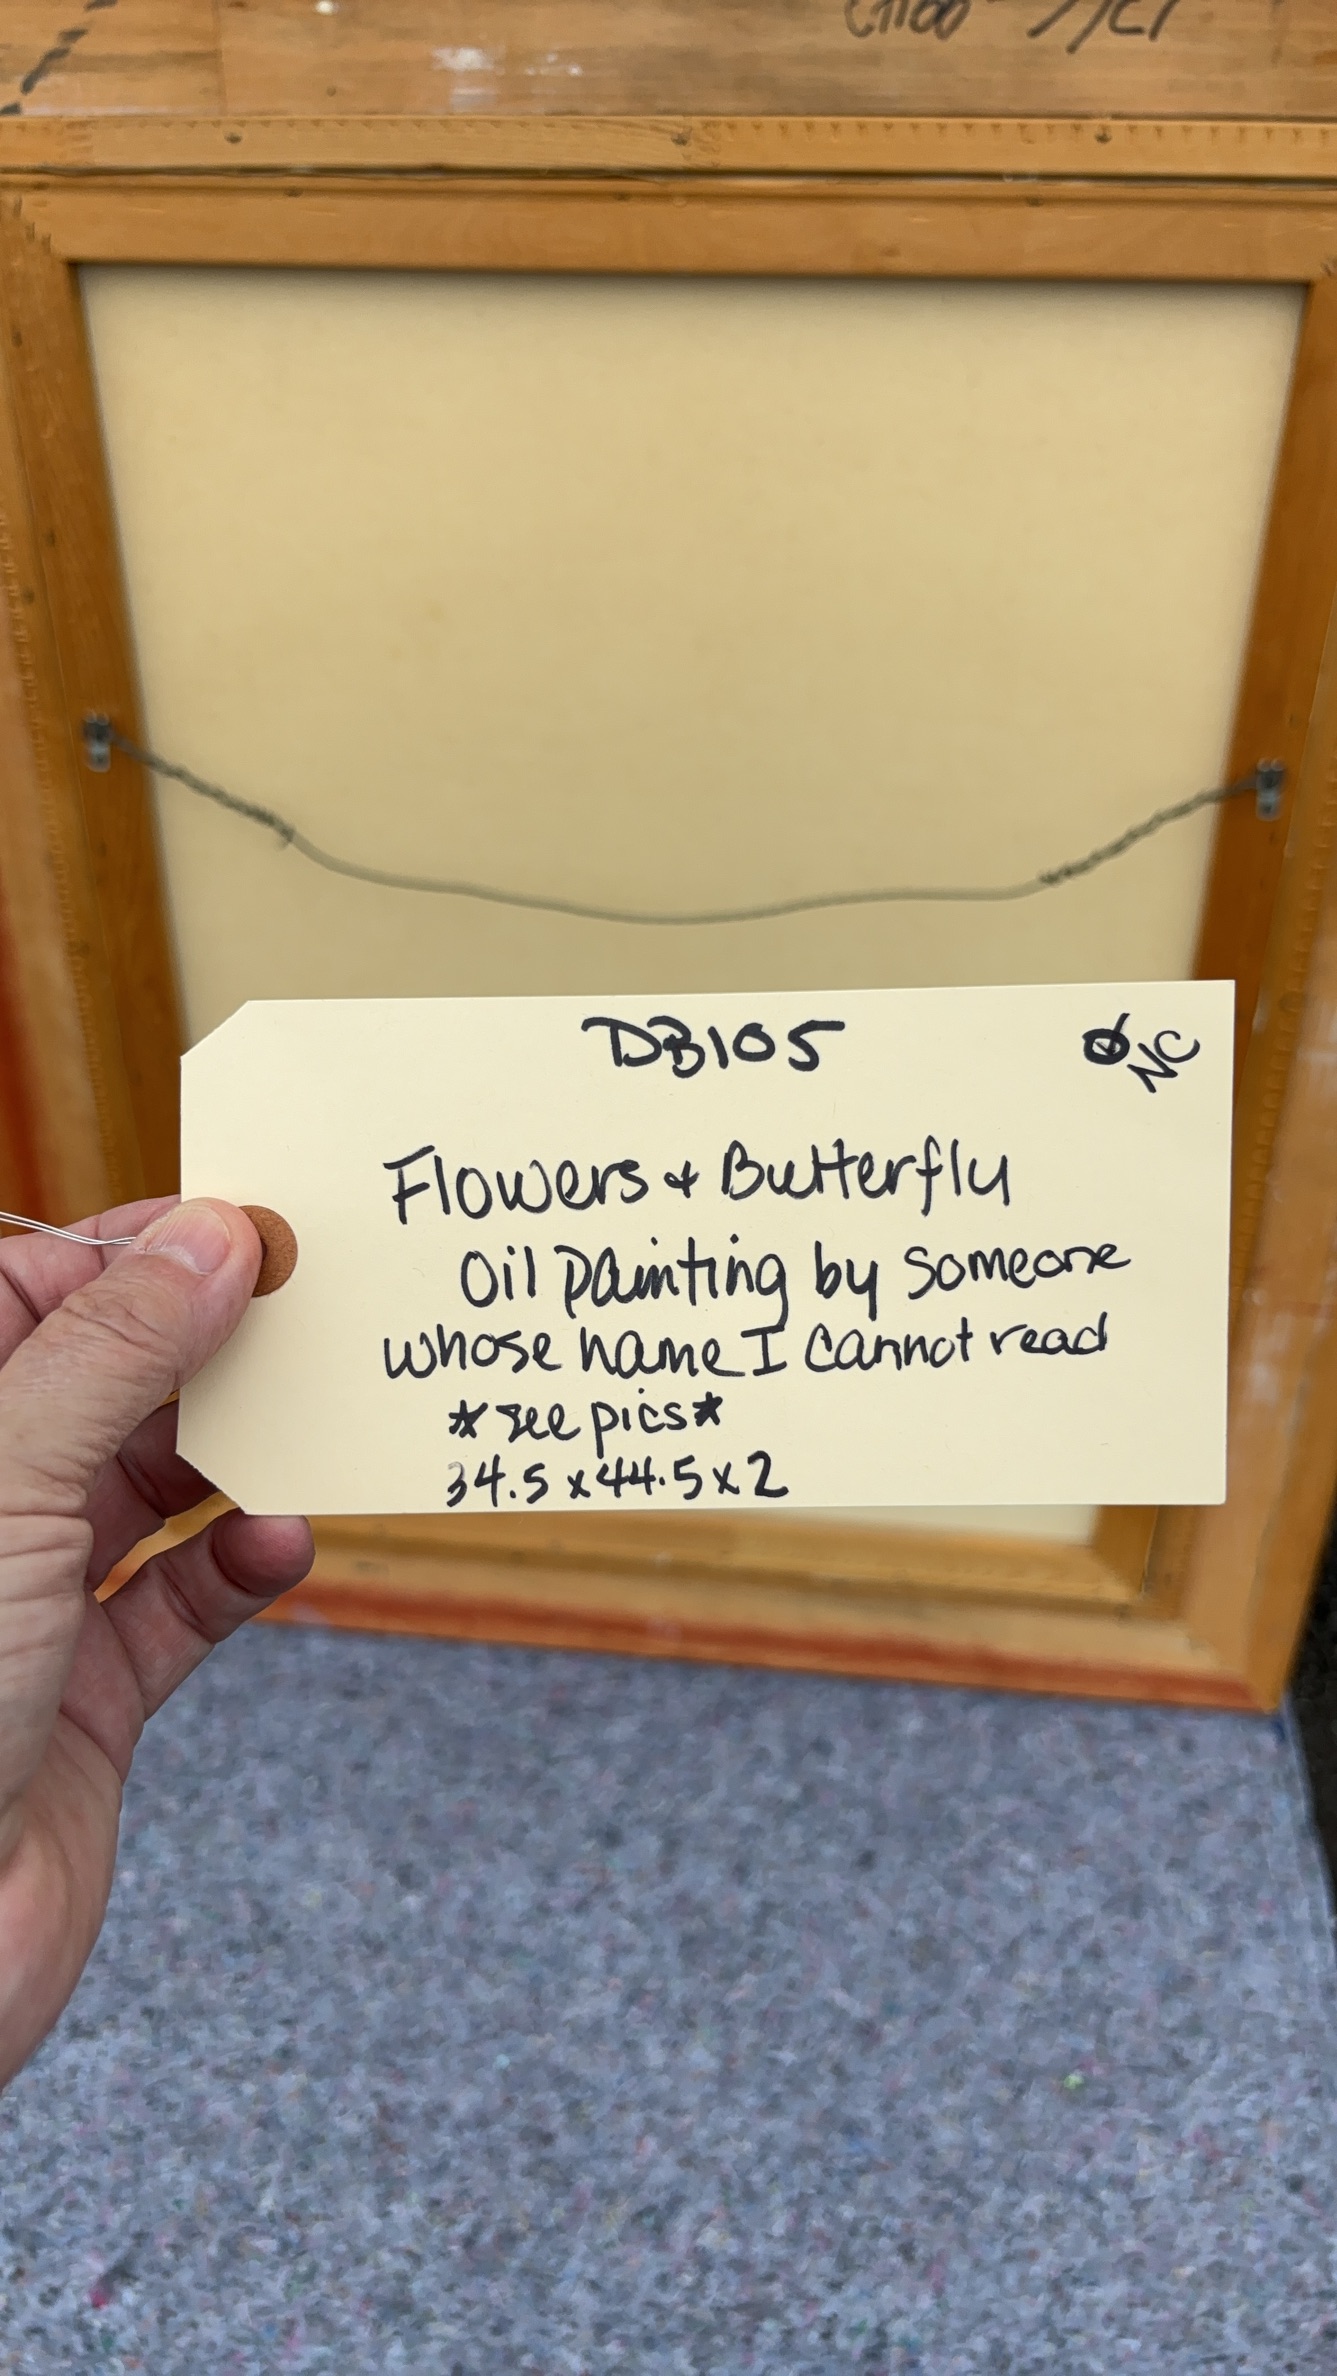 DB105
NC
Flowers + Butterfly
Oil Painting by someone
whose name I cannot read
*see pics*
34.5 x 44.5 x 2